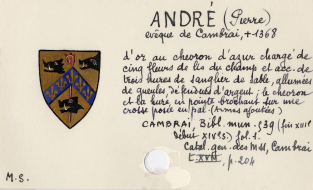 ANDRÉ (Pierre)
evêque de Cambrai, + 1368
d'or au chevron d'azur chargé de
cinq fleurs de lis du champ et acc. de
trois hures de sanglier de sable, allumées
de gueules défendues d'argent ; le chevron
et la hure en pointe brochant sur une
crosse posée en pal (Armes ajoutées)
CAMBRAI, Bibl. mun. 
(fin XIVe
début XVe s) fol. 1.
Catal. gén. des mss, Cambrai
t. XVII, p. 204
M.S.